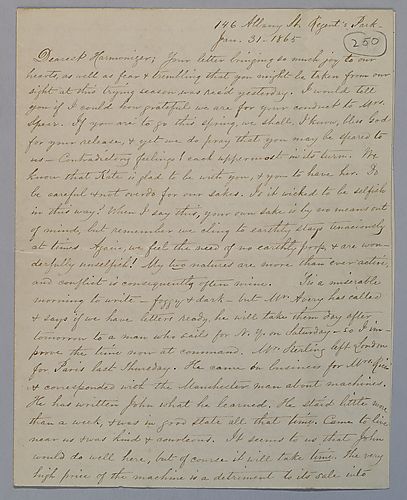 146 Albany St. Regent's Park
Jan. 31-1865
250
Dearest Harmonizer, Your letter bringing so much joy to our
hearts, as well as fear & trembling that you might be taken from our
sight at this trying season was rec'd yesterday. I would tell
you if I could how grateful we are for your conduct to Mrs.
Spear. If you are to go this spring, we shall, I know, bless God
for your release, & yet we do pray that you may be spared to
us — Contradictory feelings! each uppermost in its turn. We
know that Kate is glad to be with you, & you to have her. Do
be careful & not overdo for our sakes. Is it wicked to be selfish
in this way? When I say this, your own sake is by no means out
of mind, but remember we cling to earthly stays tenaciously
at times. Again, we feel the need of no earthly prop & are won-
derfully unselfish! My two natures are more than ever active,
and conflict is consequently often mine. Tis a miserable
morning to write — foggy & dark — but Mr. Avery has called
& says if we have letters ready, he will take them day after
tomorrow to a man who sails for N. Y. on Saturday — so I im-
prove the time now at command. Mr. Sterling left London
for Paris last Thursday. He came on business for Mrs.
& corresponded with the Manchester man about machines.
He has written John what he learned. He staid little more
than a week, & was in good state all that time. Came to live
near us & was kind & courteous. It seems to us that John
would do well here, but of course it will take time. The very
high price of the machine is a detriment to its sale into